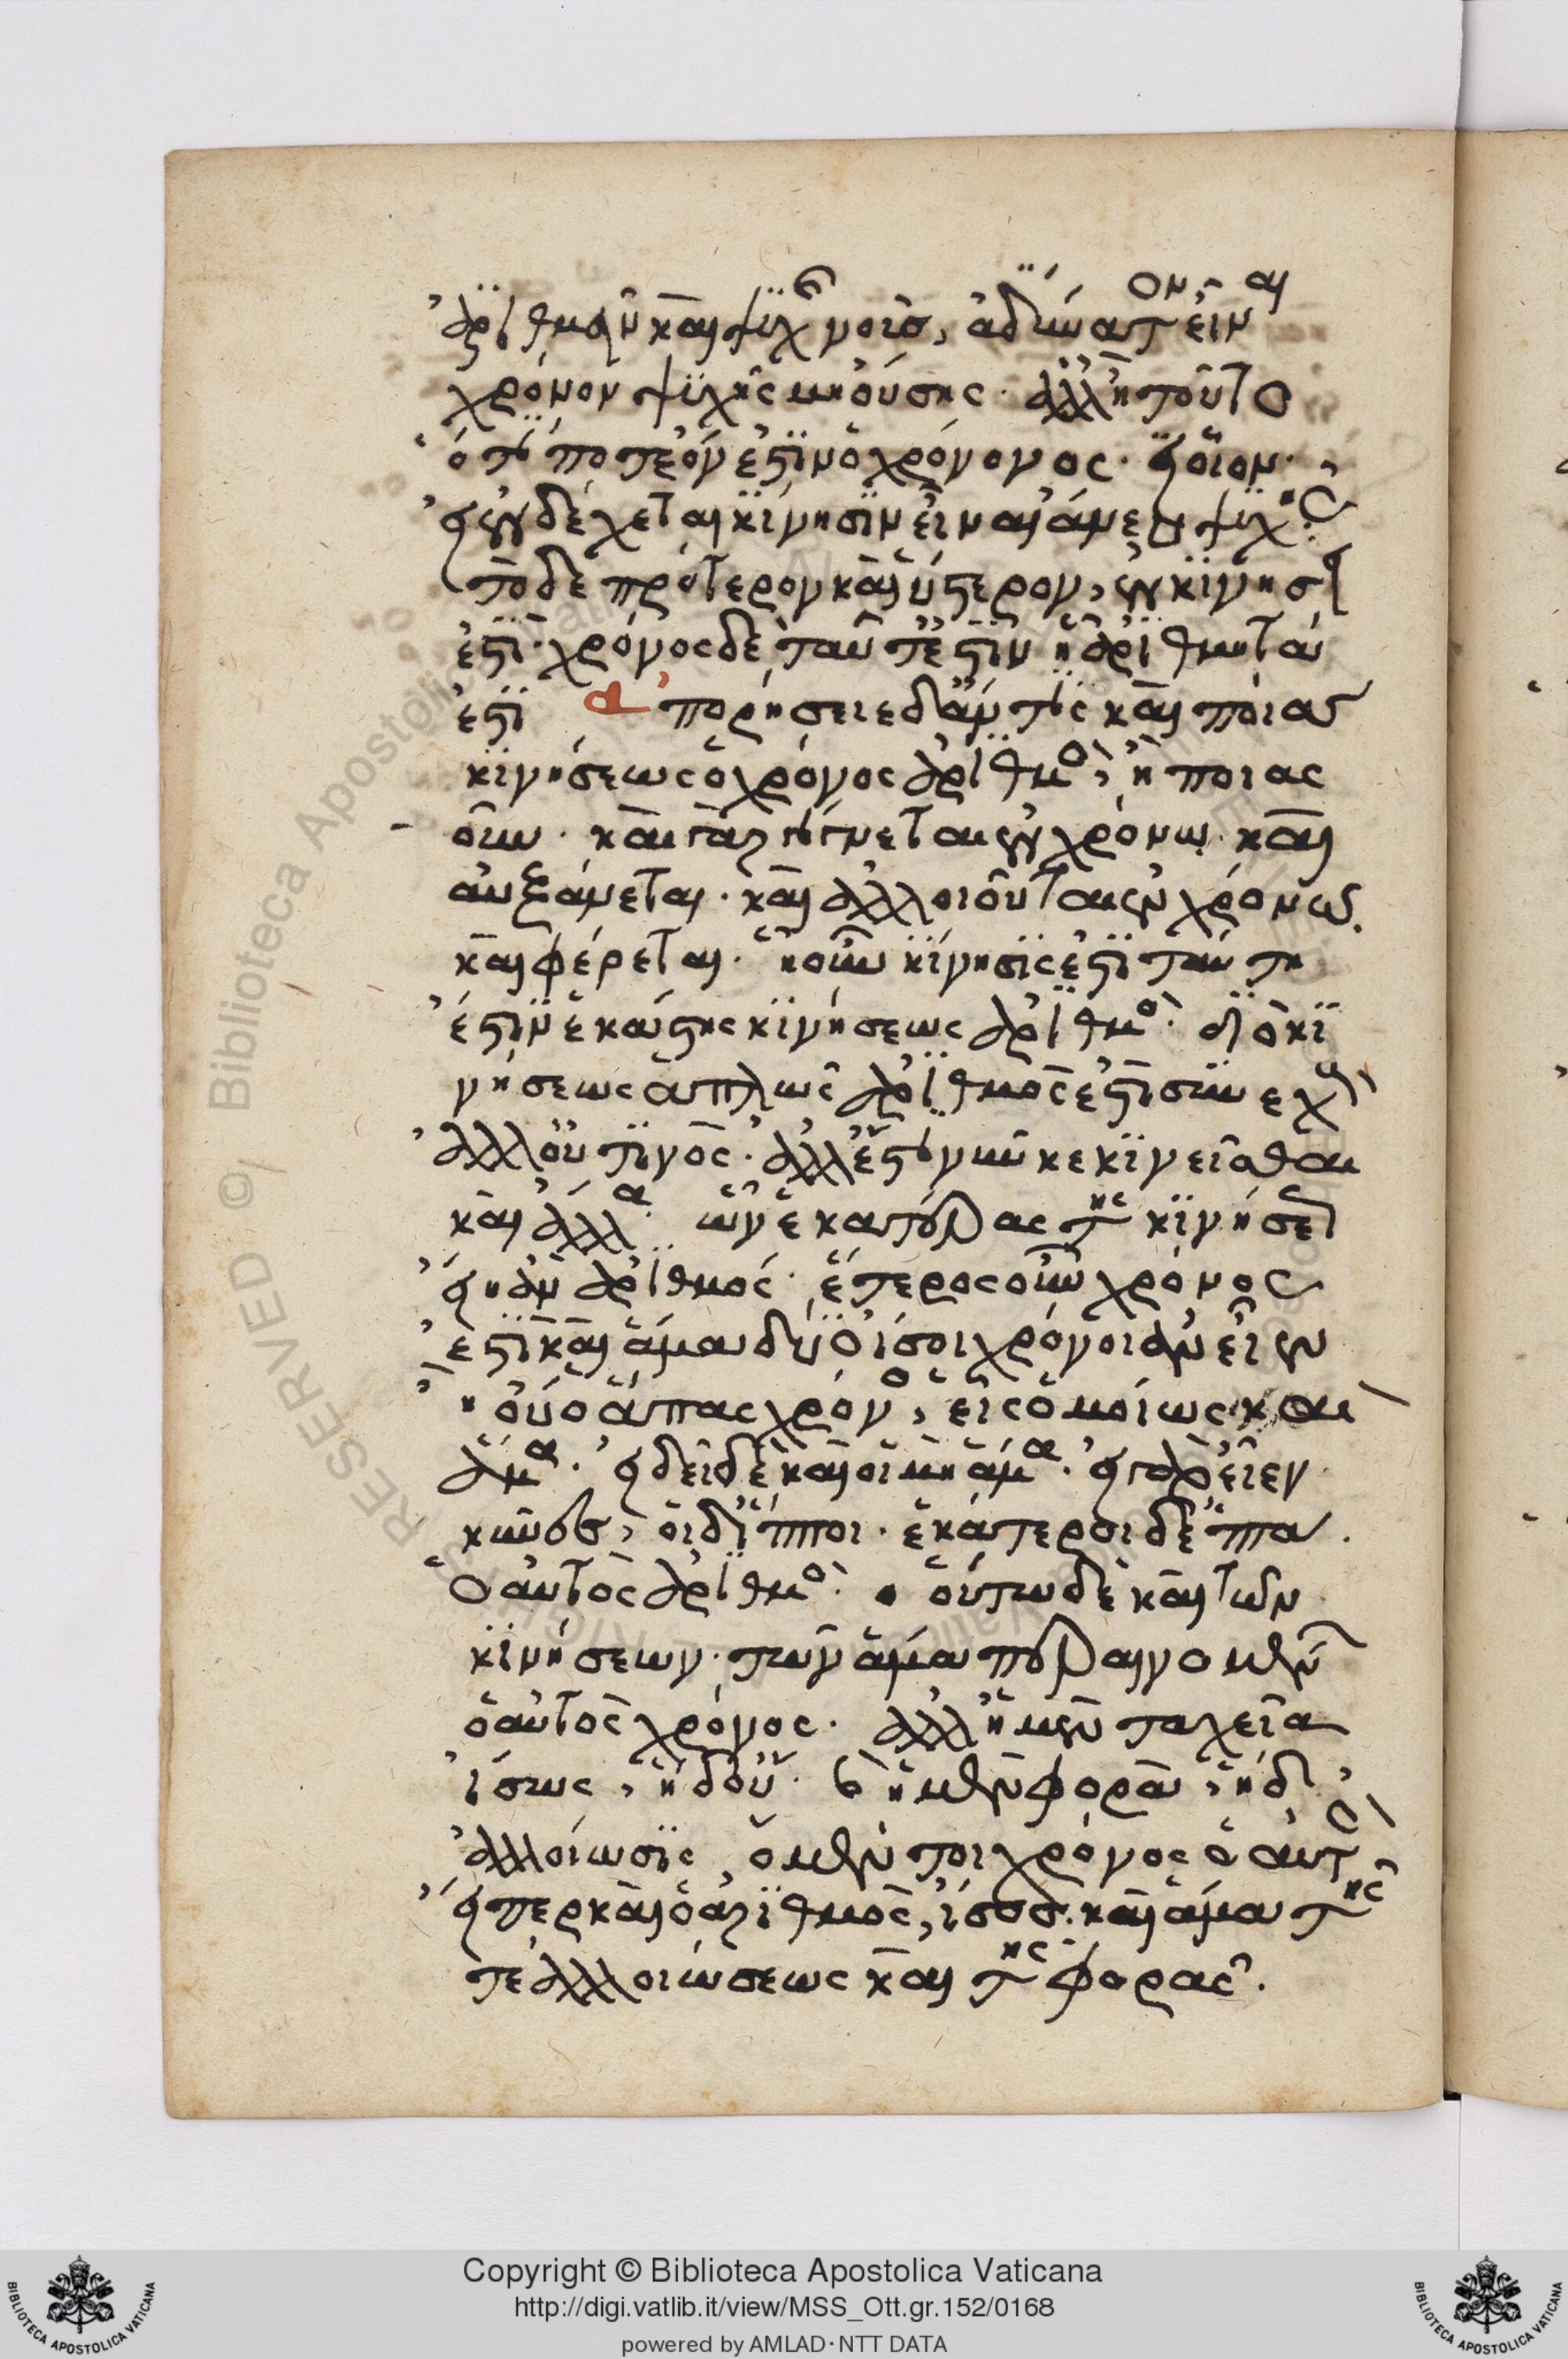 ἀριθμεῖν καὶ ψυχῆς νοῦς, ἀδύνατον εἶναι
χρόνον ψυχῆς μὴ οὔσης. ἀλλ' ἢ τοῦτο
ὅ ποτε ὄν ἐστιν ὁ χρόνος. οἷον
εἰ ἐνδέχεται κίνησιν εἶναι ἄνευ ψυχῆς.
τὸ δὲ πρότερον καὶ ὕστερον, ἐν κινήσει
ἐστί. χρόνος δὲ ταῦτ' ἐστὶν ᾗ ἀριθμητά
ἐστι ἀπορήσειε δ' ἄν τις καὶ ποίας
κινήσεως ὁ χρόνος ἀριθμός, ἢ ποιας
οῦν. καὶ γὰρ γίνεται ἐν χρόνῳ. καὶ
αὐξάνεται. καὶ ἀλλοιοῦται ἐν χρόνῳ.
καὶ φέρεται. ᾗ οὖν κίνησίς ἐστι ταύτῃ
ἐστὶν ἑκάστης κινήσεως ἀριθμός. διὸ κι
νήσεως ἁπλῶς ἀριθμός ἐστι συνεχοῦς
ἀλλ' οὐ τινός. ἀλλ' ἔστι νῦν κεκινεῖσθαι
καὶ ἄλλα. ὧν ἑκατέρας τῆς κινήσεως
εἴη ἂν ἀριθμός. ἕτερος οὖν χρόνος
ἐστὶ καὶ ἅμα δύο ἴσοι χρόνοι ἂν εἶεν
ἢ οὔ ὁ ἅπας χρόνος, εἷς ὁμοίως καὶ
ἅμα. εἴδει δὲ καὶ οἱ μὴ ἅμα. εἰ γὰρ εἶεν
κύνες, οἱ δ' ἵπποι. ἑκάτεροι δ' ἑπτά.
ὁ αὐτὸς ἀριθμός. οὕτω δὲ καὶ τῶν
κινήσεων. τῶν ἅμα περαινομένων
ὁ αὐτὸς χρόνος. ἀλλ' ἡ μὲν ταχεῖα
ἴσως, ἡ δ' οὔ. καὶ ἡ μὲν φορὰ, ἡ δ'
ἀλλοίωσις, ὁ μέν τοι χρόνος ὁ αὐτὸς
εἴπερ καὶ ὁ ἀριθμὸς, ἴσος. καὶ ἅμα τῆς
τε ἀλλοιώσεως καὶ τῆς φορᾶς.
RESERVED © Biblioteca Apostolica Vaticana
Copyright © Biblioteca Apostolica Vaticana
http://digi.vatlib.it/view/MSS_Ott.gr.152/0168
powered by AMLAD·NTT DATA
BIBLIOTECA APOSTOLICA VATICANA
BIBLIOTECA APOSTOLICA VATICANA